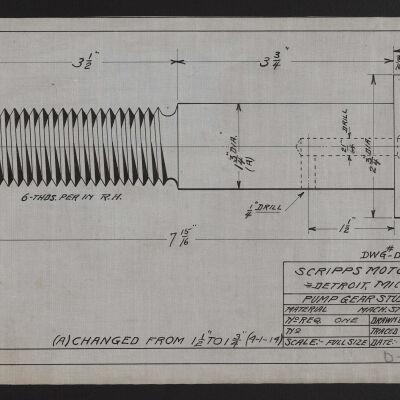 3 1/2"
3 3/4"
DRILL
1 3/4" DIA.
(A)
2 3/4" DIA.
6-THDS. PER IN R.H.
1/4" DRILL
1 1/2"
7 15/16"
DWG#-D
SCRIPPS MOTO
DETROIT, MIC
PUMP GEAR STU
MATERIAL MACH. ST
No REQ. ONE DRAWN
No TRACED
SCALE:- FULL SIZE DATE:-
(A) CHANGED FROM 1 1/2" TO 1 3/4" (9-1-19)
D-